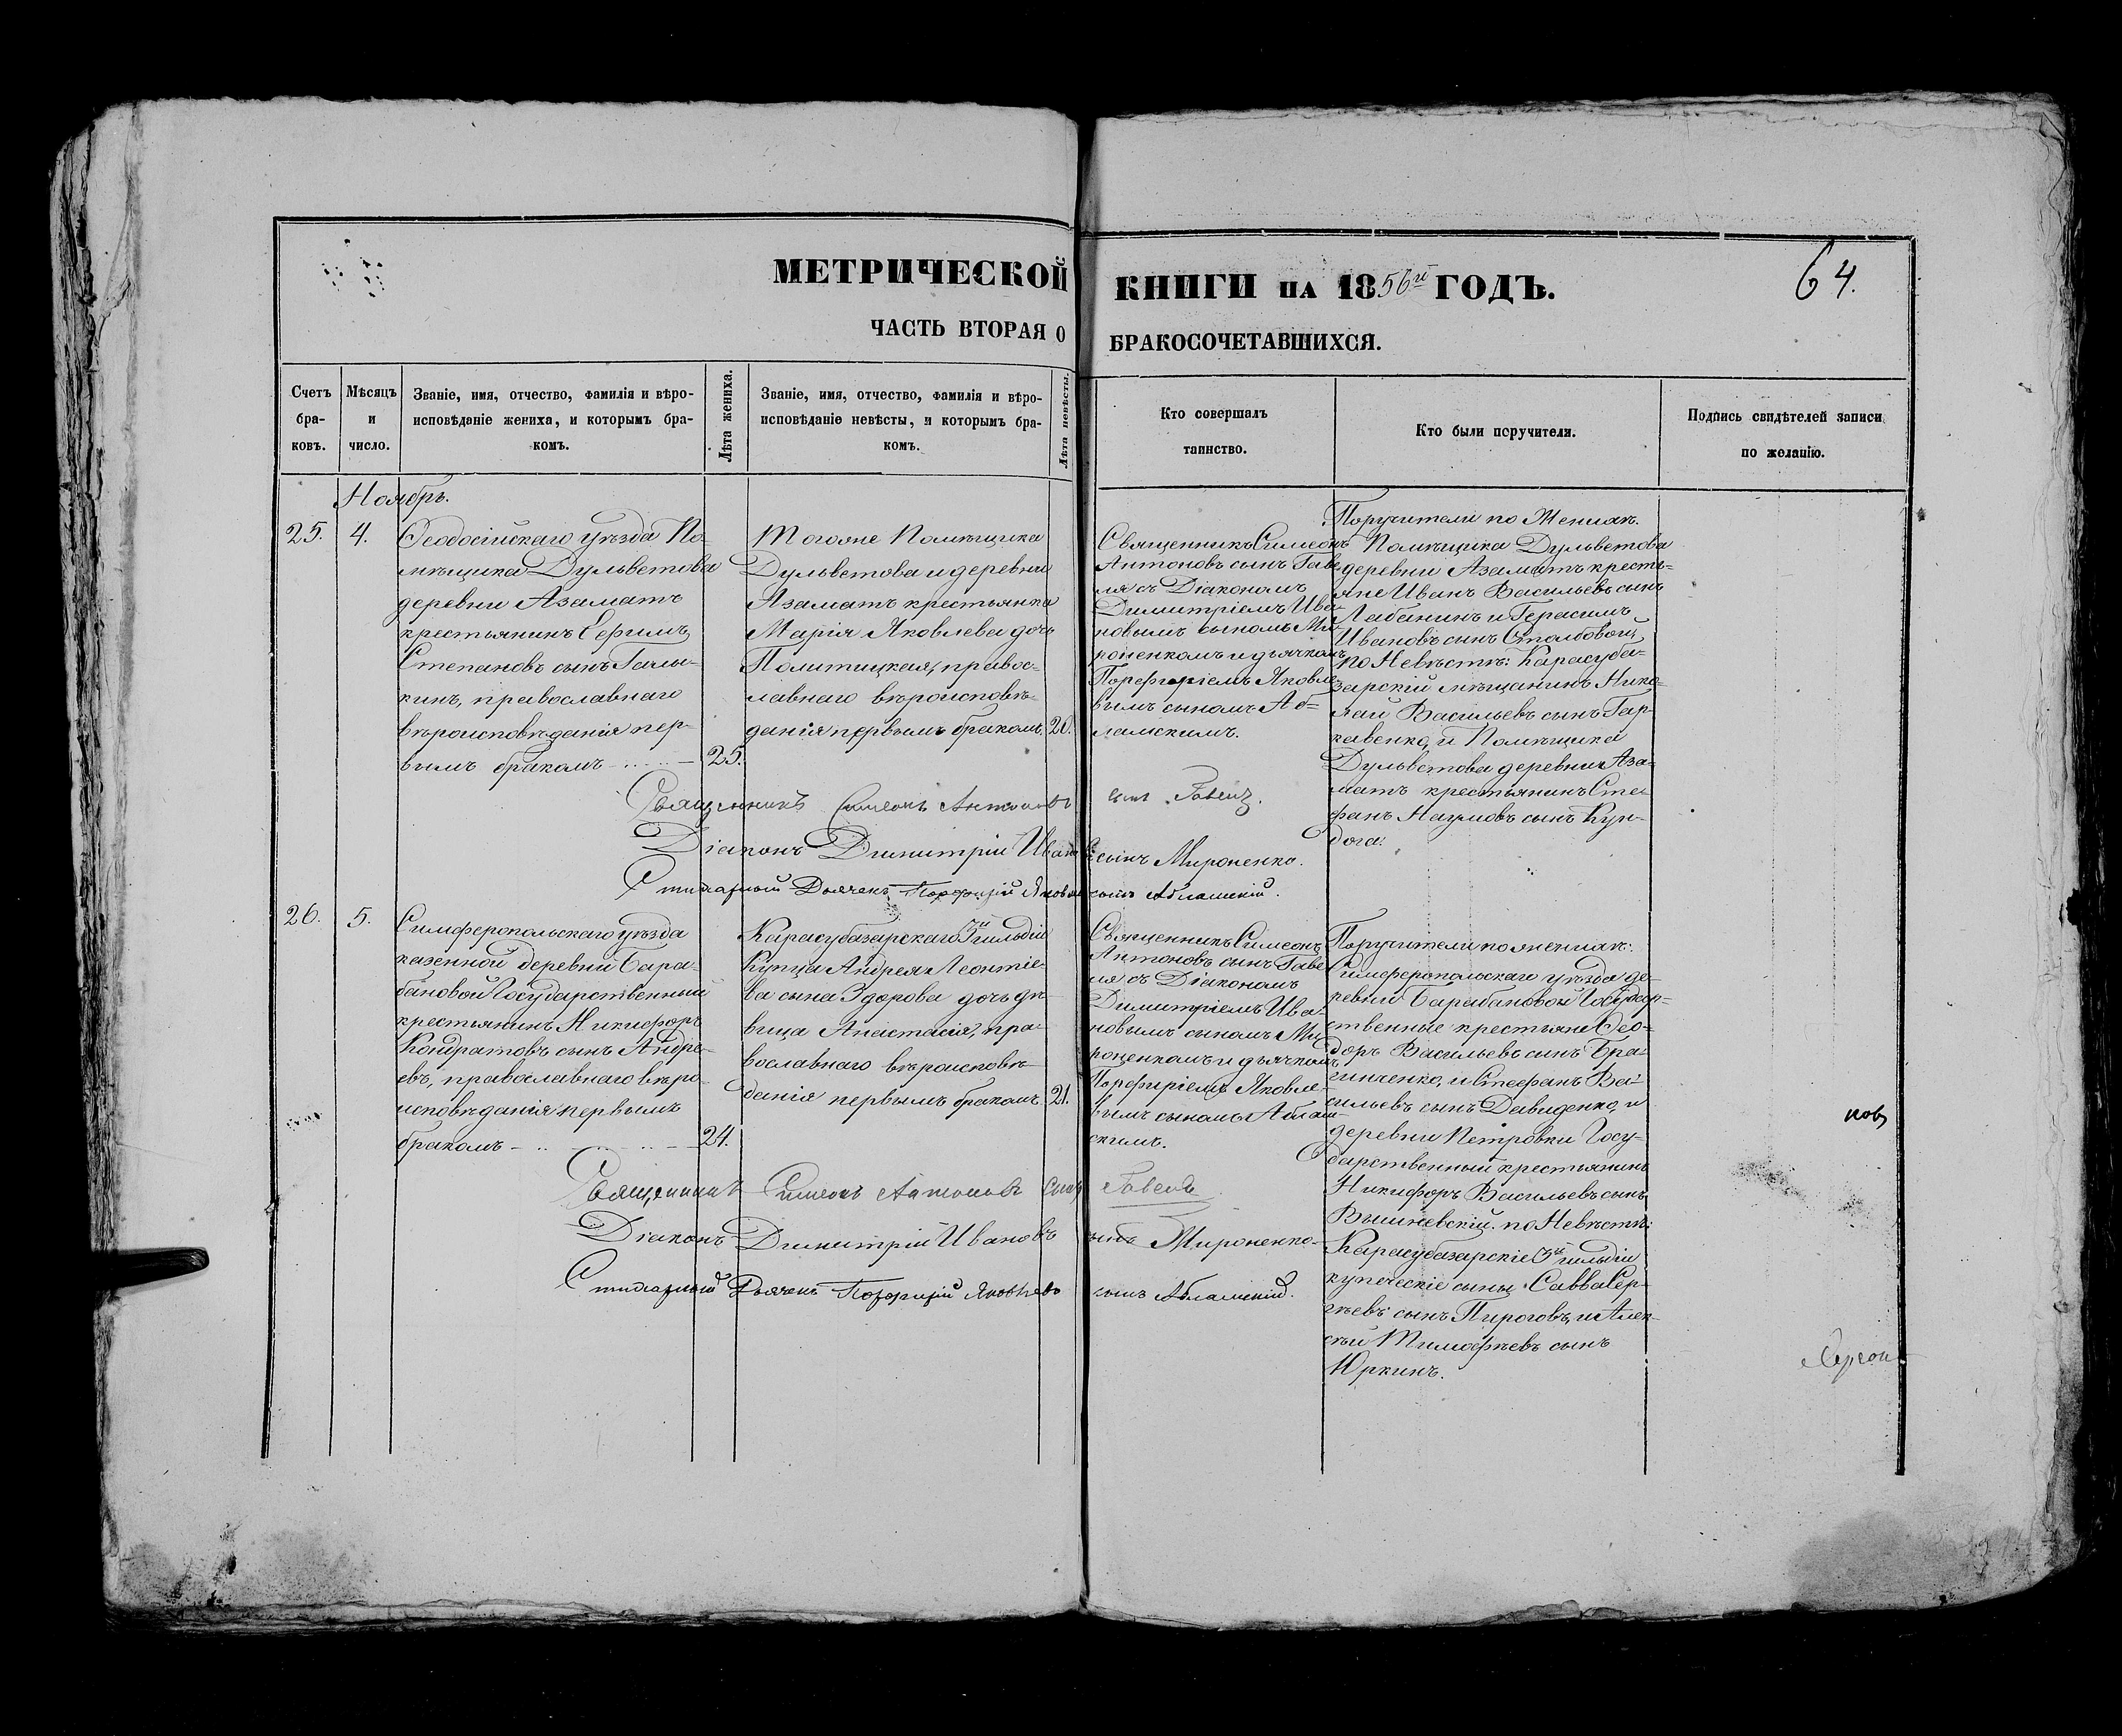 МЕТРИЧЕСКОЙ КНИГИ НА 1856й ГОДЪ.
64.
ЧАСТЬ ВТОРАЯ О БРАКОСОЧЕТАВШИХСЯ.
Счетъ
бра-
ковъ.
Мѣсяцъ
и
число.
Званіе, имя, отчество, фамилія и вѣро-
исповѣданіе жениха, и которымъ бра-
комъ.
Лѣта жениха.
Званіе, имя, отчество, фамилія и вѣро-
исповѣданіе невѣсты, и которымъ бра-
комъ.
Лѣта невѣсты.
Кто совершалъ
таинство.
Кто были поручители.
Подпись свидѣтелей записи
по желанію.
Ноябрь.
25.
4.
Ѳеодосійскаго уѣзда По-
мѣщика Дульветова
деревни Азаматъ
крестьянинъ Ефимъ
Степановъ сынъ Галы-
кинъ, православнаго
вѣроисповѣданія пер-
вымъ бракомъ
25.
Тогоже Помѣщика
Дульветова и деревни
Азаматъ крестьянка
Марія Яковлева дочь
Политицкая, правос-
лавнаго вѣроисповѣ-
данія первымъ бракомъ.
20.
Священникъ Симеонъ
Антоновъ сынъ Гаве
ля съ Діакономъ
Димитріемъ Ива-
новымъ сыномъ Ми-
роненкомъ и дьячкомъ
Порфиріемъ Яковле-
вымъ сыномъ Аб-
ламскимъ.
Поручители по Жениху.
Помѣщика Дульветова
деревни Азаматъ кресть-
яне Иванъ Васильевъ сынъ
Лабанинъ и Герасимъ
Ивановъ сынъ Столбовой,
по Невѣстѣ: Карасуба-
зарскій мѣщанинъ Нико-
лай Васильевъ сынъ Гар-
кавенко, и Помѣщика
Дульветова деревни Аза-
матъ крестьянинъ Сте-
фанъ Наумовъ сынъ Кун-
дога.
Священникъ Симеонъ Антоновъ сынъ
Діаконъ Димитрій Ивановъ сынъ Мироненко.
Стихарный Дьячекъ Порфирій Яковлевъ сынъ Абламскій.
26.
5.
Симферопольскаго уѣзда
казенной деревни Бара-
бановой Государственный
крестьянинъ Никифоръ
Кондратовъ сынъ Андре-
евъ, православнаго вѣро-
исповѣданія первымъ
бракомъ
24.
Карасубазарскаго 3й гильдіи
Купца Андрея Леонтіе-
ва сына Здорова дочь дѣ-
вица Анастасія, пра-
вославнаго вѣроисповѣ-
данія первымъ бракомъ.
21.
Священникъ Симеонъ
Антоновъ сынъ Гаве
ля съ Діакономъ
Димитріемъ Ива-
новымъ сыномъ Ми-
роненкомъ и дьячкомъ
Порфиріемъ Яковле-
вымъ сыномъ Аблам-
скимъ.
Поручители по жениху:
Симферопольскаго уѣзда де-
ревни Барабановой Государ-
ственные крестьяне Ѳео-
доръ Васильевъ сынъ Бра-
гинченко, и Стефанъ Ва-
сильевъ сынъ Давиденко, и
деревни Петровки Госу-
дарственный крестьянинъ
Никифоръ Васильевъ сынъ
Вышневскій. по Невѣстѣ:
Карасубазарскіе 3й гильдіи
купеческіе сыны Савва Сер-
гѣевъ сынъ Пироговъ, и Алек-
сѣй Тимофѣевъ сынъ
Юркинъ.
Священникъ Симеонъ Антоновъ сынъ
Діаконъ Димитрій Ивановъ сынъ Мироненко
Стихарный Дьячекъ Порфирій Яковлевъ сынъ Абламскій.
ковъ